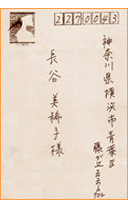 2270043
神奈川県横浜市青葉区
藤が丘
長谷美
子様